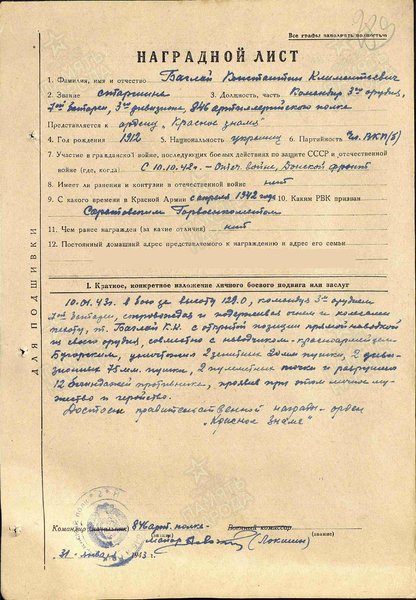 Все графы заполнять полностью
НАГРАДНОЙ ЛИСТ
1. Фамилия, имя и отчество Баглай Константин Климентьевич
2. Звание старшина 3. Должность, часть Командир 3го орудия,
7ой батареи, 3го дивизиона, 846 артиллерийского полка
Представляется к ордену „Красное знамя"
4. Год рождения 1912 5. Национальность украинец 6. Партийность чл. ВКП(б)
7. Участие в гражданской войне, последующих боевых действиях по защите СССР и отечественной
войне (где, когда) С 10.10.42г. - Отеч. война, Донской фронт
8. Имеет ли ранения и контузии в отечественной войне нет
9. С какого времени в Красной Армии с апреля 1942 года 10. Каким РВК призван
Саратовским Горвоенкоматом
11. Чем ранее награжден (за какие отличия) нет
12. Постоянный домашний адрес представляемого к награждению и адрес его семьи
ДЛЯ ПОДШИВКИ
I. Краткое, конкретное изложение личного боевого подвига или заслуг
10.01.43г. в бою за высоту 129.0, командуя 3им орудием
7ой батареи, сопровождая и поддерживая огнем и колесами
пехоту, т. Баглай К.К. с открытой позиции прямой наводкой
из своего орудия, совместно с наводчиком-красноармейцем
уничтожил 2 зенитных 20мм пушки, 2 дивизионных 75мм. пушки, 2 пулеметных точки и разрушил
12 блиндажей противника, проявив при этом личное мужество и геройство.
Достоин правительственной награды - орден
„Красное знамя"
Командир (начальник) 846 арт. полка -
майор (Локшин)
Военный комиссар
(звание)
(звание)
„31" январь 1943 г.